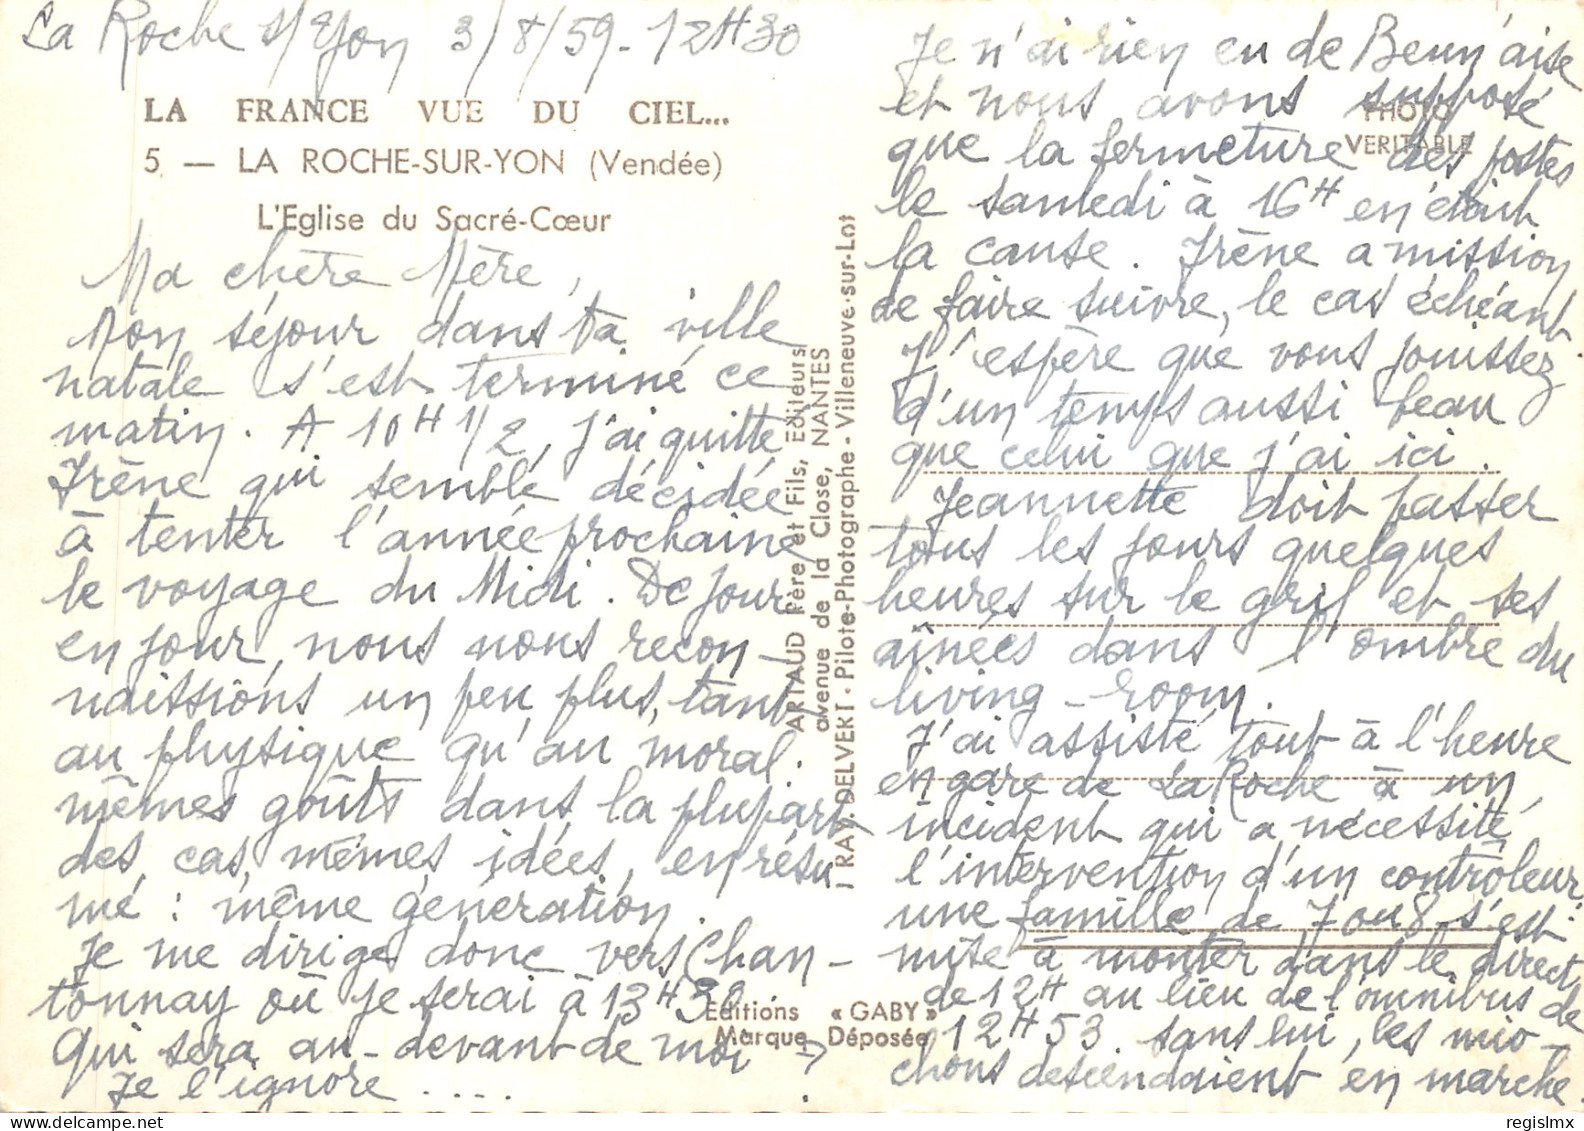 La Roche s/Yon 3/8/59 - 12H30
LA FRANCE VUE DU CIEL...
5 — LA ROCHE-SUR-YON (Vendée)
L'Eglise du Sacré-Cœur
Ma chère Mère,
Mon séjour dans ta ville
natale s'est terminé ce
matin. A 10H 1/2, j'ai quitté
Irène qui semble décidée
à tenter l'année prochaine
le voyage du Midi. De jour
en jour, nous nous recon-
naissions un peu plus, tant
au physique qu'au moral.
mêmes goûts dans la plupart
des cas, mêmes idées, en résu-
mé : même génération.
Je me dirige donc vers Chan-
tonnay où je serai à 13H30
Qui sera au-devant de moi →
Je l'ignore ....
Editions « GABY »
Marque Déposée
ARTAUD Père et Fils, Editeurs
avenue de la Close, NANTES
RAY. DELVERT - Pilote-Photographe - Villeneuve-sur-Lot
PHOTO
VERITABLE
Je n'ai rien eu de Beun'aise
et nous avons supposé
que la fermeture des postes
le samedi à 16H en était
la cause. Irène a mission
de faire suivre, le cas échéant
J'espère que vous jouissez
d'un temps aussi beau
que celui que j'ai ici.
Jeannette doit passer
tous les jours quelques
heures sur le gril et ses
aînées dans l'ombre du
living-room.
J'ai assisté tout à l'heure
en gare de La Roche à un
incident qui a nécessité
l'intervention d'un contrôleur.
une famille de 7 ou 8 s'est
mise à monter dans le direct
de 12H au lieu de l'omnibus de
12H53. sans lui, les mio-
chons descendaient en marche.